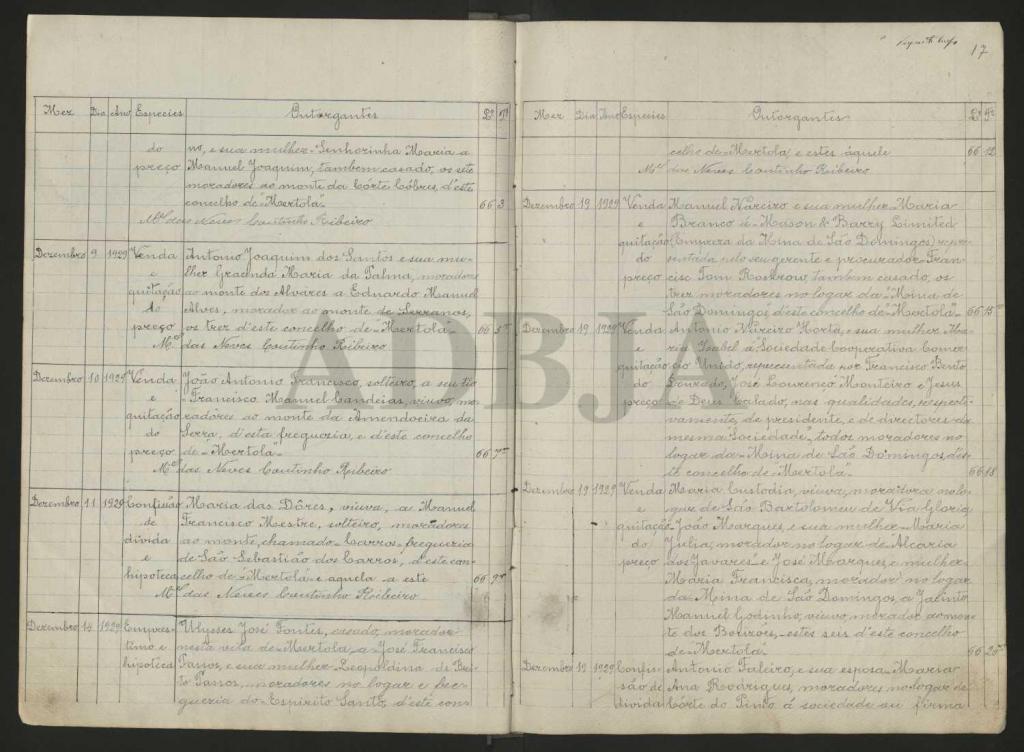 Mez Dia Ano Especies Outorgantes Lº Fª
do no, e sua mulher Senhorinha Maria a
preço Manuel Joaquim, tambem casado, os sete
moradores ao monte da Côrte Cóbres, d'este
concelho de "Mertola" 66 3
Mel das Neves Coutinho Ribeiro
Dezembro 9 1929 Venda Antonio Joaquim dos Santos e sua mu-
e lher Gracinda Maria da Palma, moradores
quitação ao monte dos Alvares a Eduardo Manuel
do Alves, morador ao monte de Serranos,
preço os trez d'este concelho de "Mertola" 66 5
Mel das Neves Coutinho Ribeiro
Dezembro 10 1929 Venda João Antonio Francisco, solteiro, a seu tio
e Francisco Manuel Candeias, viuvo, mo-
quitação radores ao monte da Amendoeira da
do Serra, d'esta freguezia, e d'este concelho
preço de "Mertola" 66 7
Mel das Neves Coutinho Ribeiro
Dezembro 11 1929 Confissão Maria das Dôres, viuva, a Manuel
de Francisco Mestre, solteiro, moradores
divida ao monte, chamado Carros, freguezia
e de São Sebastião dos Carros, d'este con-
hipoteca celho de "Mertola" e aquela a este 66 9
Mel das Neves Coutinho Ribeiro
Dezembro 1929 Empres- Ulysses José Fontes, casado, morador
timo e nesta vila de Mertola, a José Francisco
hipoteca e sua mulher Leopoldina de Bri-
to moradores no logar e fre-
guezia do Espirito Santo, d'este con-
17
Mez Dia Ano Especies Outorgantes Lº Fª
celho de "Mertola", e estes áquele 66 12
Mel das Neves Coutinho Ribeiro
Dezembro 19 1929 Venda Manuel Narcizo e sua mulher Maria
e Branco á "Mason & Barry Limited
quitação (Empreza da Mina de São Domingos) repre-
do sentada pelo seu gerente e procurador Fran-
preço cisc Tom Rostrow, tambem casado, os
trez moradores no logar da "Mina de
São Domingos, d'este concelho de "Mertola" 66 15
Dezembro 19 1929 Venda Antonio Narcizo Horta, e sua mulher Ma-
e ria Izabel á "Sociedade Cooperativa Comer-
quitação cio Unido, representada por Francisco Bento
do Lourado, José Lourenço Monteiro e Jesus
preço e Deus Casado, nas qualidades, respecti-
vamente, de presidente, e de directores da
mesma "Sociedade", todos moradores no
logar da "Mina de São Domingos, dês-
te concelho de "Mertola" 66 18
Dezembro 19 1929 Venda Maria Custodia, viuva, moradora no lo-
e gar de São Bartolomeu de Via Gloria
quitação João Marques, e sua mulher Maria
do Julia, morador no logar de Alcaria
preço dos Javares e José Marques, e mulher
Maria Francisca, morador no logar
da Mina de São Domingos, a Jacinto
Manuel Godinho, viuvo, morador ao mon-
te dos Bourões, estes seis d'este concelho
de "Mertola" 66 20
Dezembro 19 1929 Confis- Antonio Faleiro, e sua esposa Maria
são de Ana Rodrigues, moradores no logar de
divida Côrte do Pinto á sociedade ou firma
ADBJA